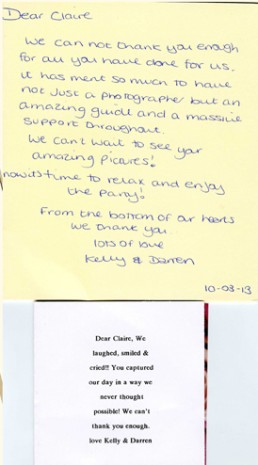 Dear Claire
We can not thank you enough
for all you have done for us.
it has ment so much to have
not just a photographer but an
amazing guide and a massive
support throughout.
We can't wait to see your
amazing pictures!
now its time to relax and enjoy
the party!
From the bottom of our hearts
we thank you
lots of love
Kelly & Darren
10-03-13
Dear Claire, We
laughed, smiled &
cried!! You captured
our day in a way we
never thought
possible! We can't
thank you enough.
love Kelly & Darren